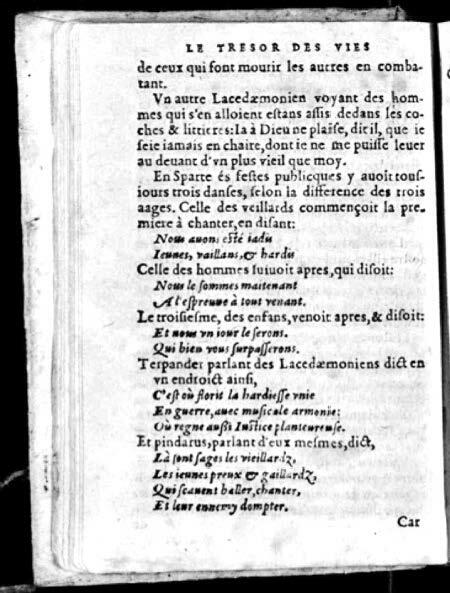 LE TRESOR DES VIES
de ceux qui font mourir les autres en comba-
tant.
Vn autre Lacedæmonien voyant des hom-
mes qui s'en alloient estans assis dedans les co-
ches & littieres: Ia à Dieu ne plaise, dit il, que ie
seie iamais en chaire, dont ie ne me puisse leuer
au deuant d'vn plus vieil que moy.
En Sparte és festes publicques y auoit tous-
iours trois danses, selon la difference des trois
aages. Celle des veillards commençoit la pre-
miere à chanter, en disant:
Nous auons esté iadis
Ieunes, vaillans, & hardis
Celle des hommes suiuoit apres, qui disoit:
Nous le sommes maitenant
A l'espreuue à tout venant.
Le troisiesme, des enfans, venoit apres, & disoit:
Et nous vn iour le serons.
Qui bien vous surpasserons.
Terpander parlant des Lacedæmoniens dict en
vn endroict ainsi,
C'est où florit la hardiesse vnie
En guerre, auec musicale armonie:
Où regne aussi Iustice planteureuse.
Et pindarus, parlant d'eux mesmes, dict,
Là sont sages les vieillardz,
Les ieunes preux & gaillardz,
Qui sçauent baller, chanter,
Et leur ennemy dompter.
Car